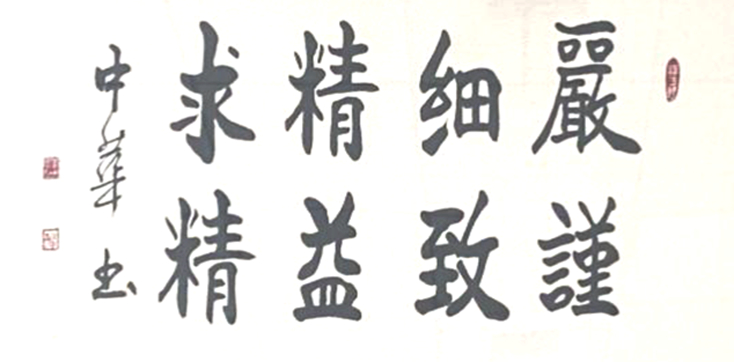 嚴謹
细致
精益
求精
中華书